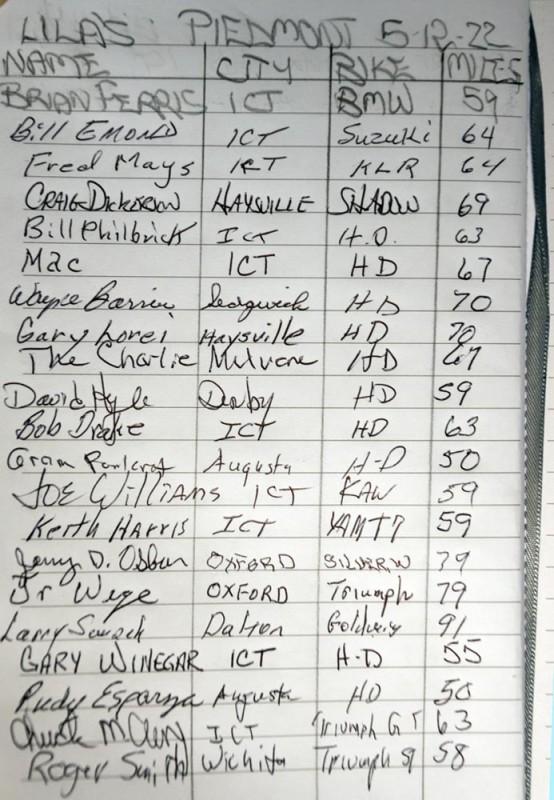 LILA'S PIEDMONT 5-12-22
NAME CITY BIKE MILES
BRIAN FERRIS ICT BMW 59
Bill EMOND ICT Suzuki 64
Fred Mays ICT KLR 64
CRAIG Dickerson HAYSVILLE SHADOW 69
Bill Philbrick ICT H.D. 63
Mac ICT HD 67
Wayne Sedgwick HD 70
Gary Lorei Haysville HD 70
The Charlie Mulvane HD 67
David Hyle Derby HD 59
Bob Drake ICT HD 63
Augusta H-D 50
JOE WILLIAMS ICT KAW 59
Keith HARRIS ICT 59
Jerry D. Osburn OXFORD SILVERW 79
Jr Wege OXFORD Triumph 79
Larry Dalton Goldwing 91
GARY WINEGAR ICT H-D 55
Rudy Esparza Augusta HD 50
Chuck ICT Triumph GT 63
Roger Smith Wichita Triumph 58